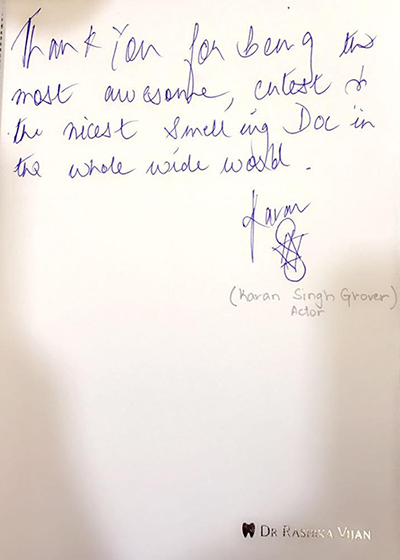 Thank You for being the
most awesome, cutest &
the nicest smelling Doc in
the whole wide world.
Karan
(Karan Singh Grover)
Actor
DR RASHIKA VIJAN